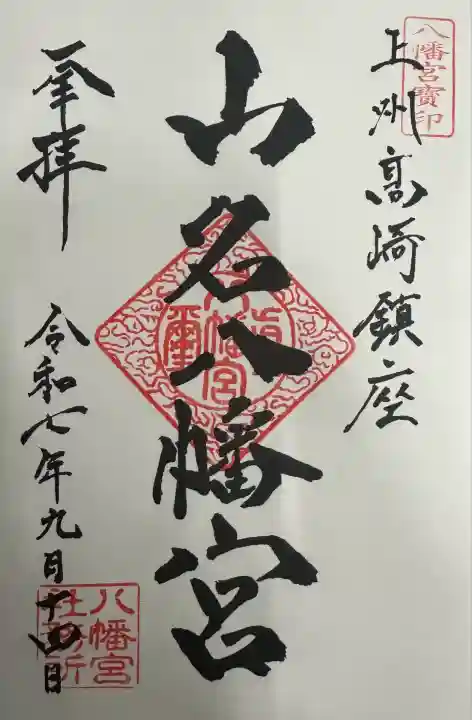 八幡宮寶印
上州高崎鎮座
山名八幡宮
奉拝
令和七年九月十四日
八幡宮
社務所